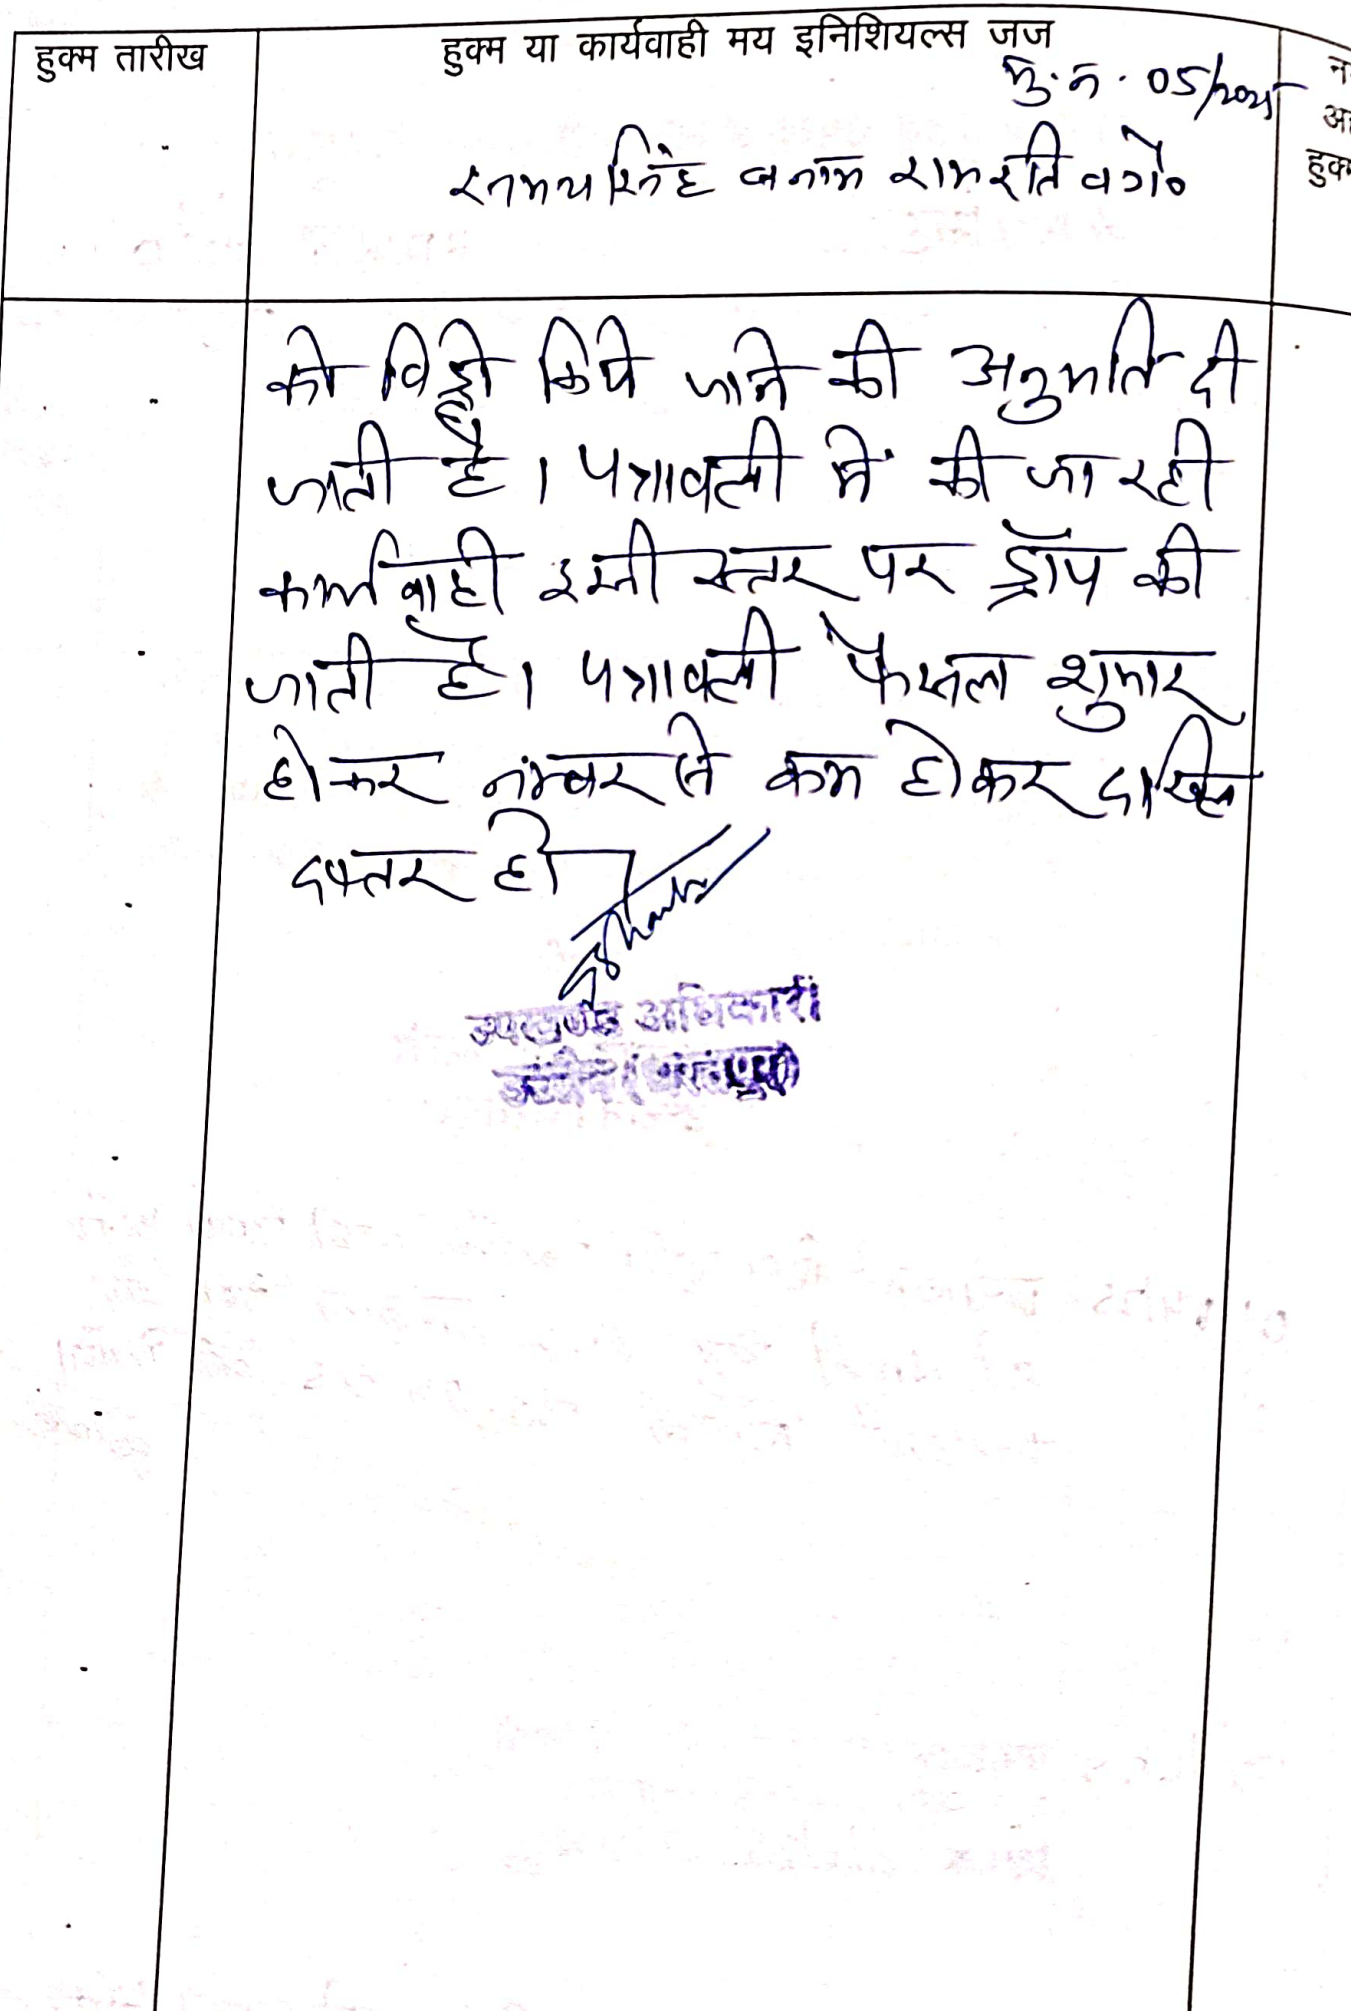 हुक्म तारीख
हुक्म या कार्यवाही मय इनिशियल्स जज
मु. न. 05/2025
समयसिंह बनाम रामरति वगै०
हुक्म
को विड्रो किये जाने की अनुमति दी
जाती है। पत्रावली में की जा रही
कार्यवाही इसी स्तर पर ड्रॉप की
जाती है। पत्रावली फैसला शुमार
होकर नम्बर से कम होकर दाखिल
दफ्तर हो
उपखण्ड अधिकारी